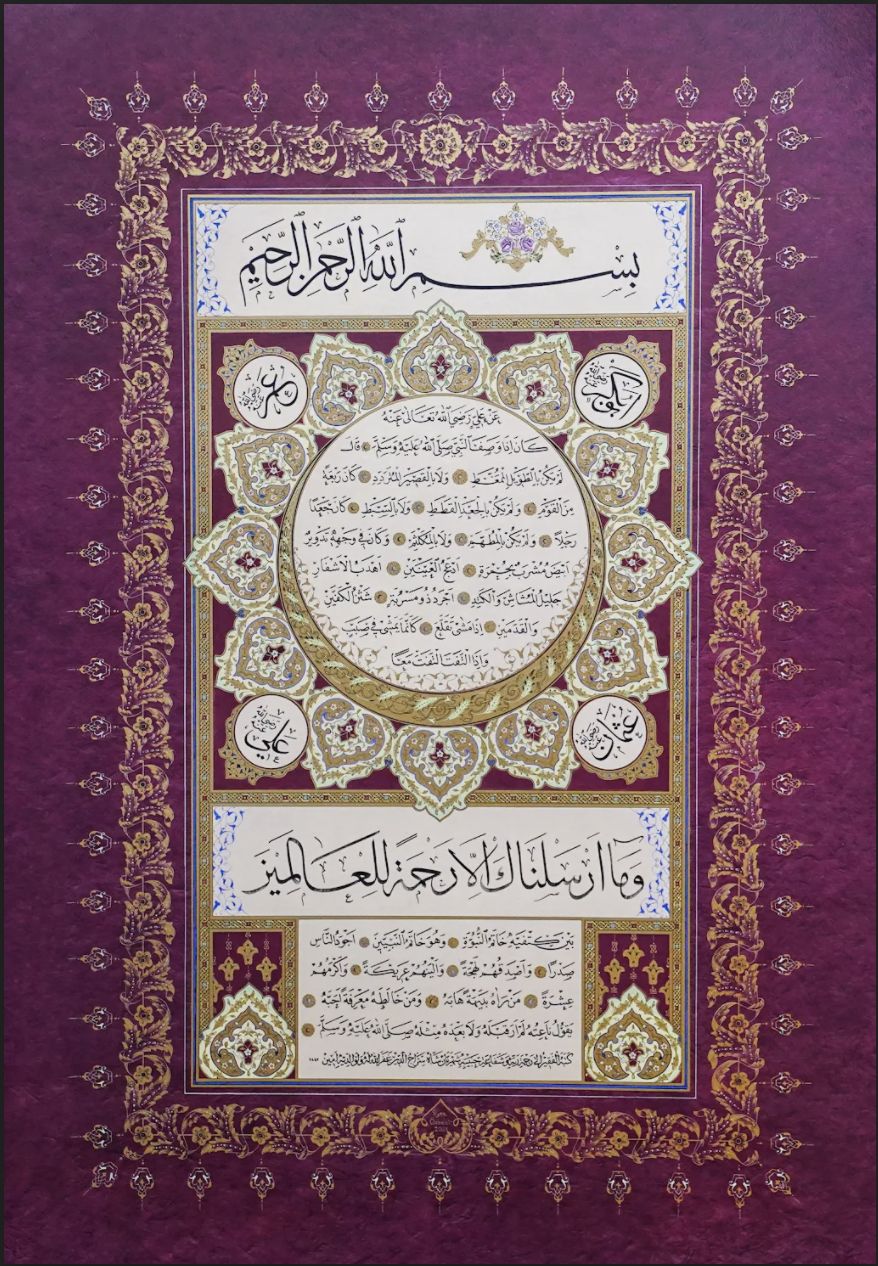 بِسْمِ اللّٰهِ الرَّحْمٰنِ الرَّحِيمِ
ابوبكر رضي الله عنه
عمر رضي الله عنه
عَنْ عَلِيٍّ رَضِيَ اللّٰهُ تَعَالٰى عَنْهُ
كَانَ اِذَا وَصَفَ النَّبِيَّ صَلَّى اللّٰهُ عَلَيْهِ وَسَلَّمَ قَالَ
لَمْ يَكُنْ بِالطَّوِيلِ الْمُمَّغِطِ وَلَا بِالْقَصِيرِ الْمُتَرَدِّدِ كَانَ رَبْعَةً
مِنَ الْقَوْمِ وَلَمْ يَكُنْ بِالْجَعْدِ الْقَطَطِ وَلَا بِالسَّبِطِ كَانَ جَعْدًا
رَجِلًا وَلَمْ يَكُنْ بِالْمُطَهَّمِ وَلَا بِالْمُكَلْثَمِ وَكَانَ فِي وَجْهِهِ تَدْوِيرٌ
اَبْيَضُ مُشْرَبٌ بِحُمْرَةٍ اَدْعَجُ الْعَيْنَيْنِ اَهْدَبُ الْاَشْفَارِ
جَلِيلُ الْمُشَاشِ وَالْكَتَدِ اَجْرَدُ ذُو مَسْرُبَةٍ شَثْنُ الْكَفَّيْنِ
وَالْقَدَمَيْنِ اِذَا مَشٰى تَقَلَّعَ كَاَنَّمَا يَمْشِي فِي صَبَبٍ
وَاِذَا الْتَفَتَ الْتَفَتَ مَعًا
عثمان رضي الله عنه
علي رضي الله عنه
وَمَا اَرْسَلْنَاكَ اِلَّا رَحْمَةً لِلْعَالَمِينَ
بَيْنَ كَتِفَيْهِ خَاتَمُ النُّبُوَّةِ وَهُوَ خَاتَمُ النَّبِيِّينَ اَجْوَدُ النَّاسِ
صَدْرًا وَاَصْدَقُهُمْ لَهْجَةً وَاَلْيَنُهُمْ عَرِيكَةً وَاَكْرَمُهُمْ
عِشْرَةً مَنْ رَاٰهُ بَدِيهَةً هَابَهُ وَمَنْ خَالَطَهُ مَعْرِفَةً اَحَبَّهُ
يَقُولُ نَاعِتُهُ لَمْ اَرَ قَبْلَهُ وَلَا بَعْدَهُ مِثْلَهُ صَلَّى اللّٰهُ عَلَيْهِ وَسَلَّمَ
كتبه الفقير الى رحمة ربه